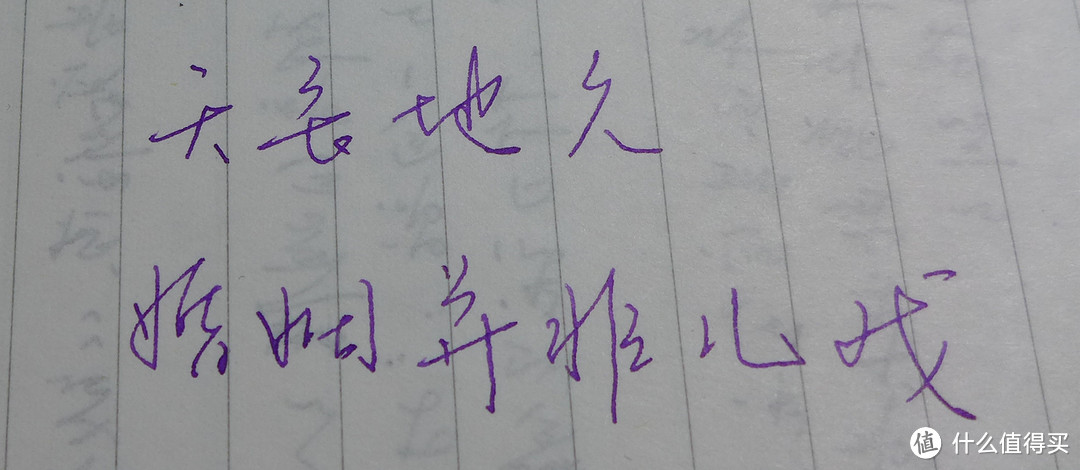 天长地久
婚姻并非儿戏
值 什么值得买